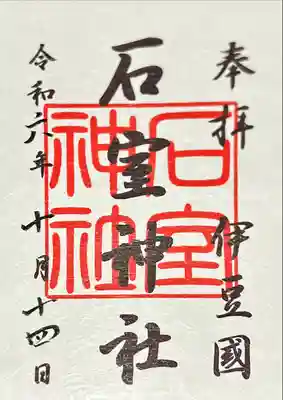 奉拝 伊豆國
石室神社
石室
神社
令和六年 十月十四日